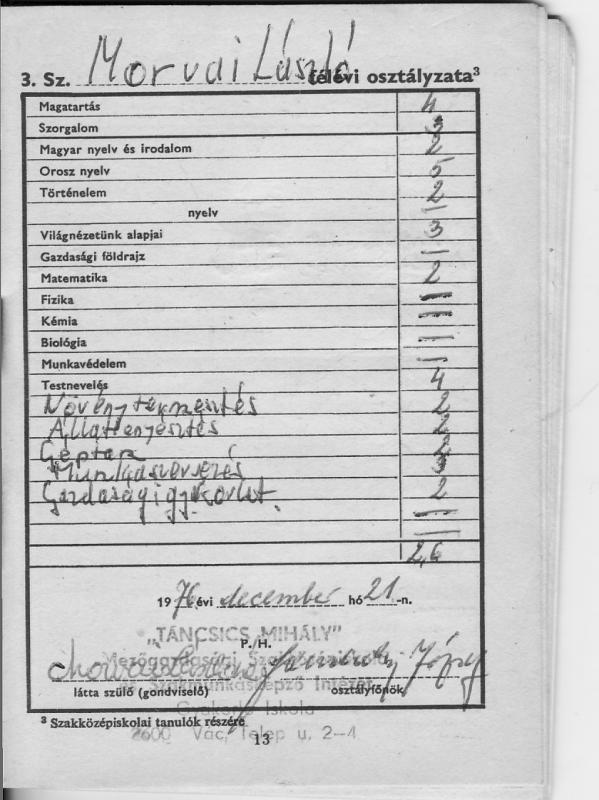 3. Sz. Morvai László félévi osztályzata³
Magatartás 4
Szorgalom 3
Magyar nyelv és irodalom 2
Orosz nyelv 5
Történelem 2
nyelv —
Világnézetünk alapjai 3
Gazdasági földrajz —
Matematika 2
Fizika —
Kémia —
Biológia —
Munkavédelem —
Testnevelés 4
Növénytermesztés 2
Állattenyésztés 2
Géptan 2
Munkaszervezés 3
Gazdasági gyakorlat. 2
—
—
2,6
1976 évi december hó 21-n.
„TÁNCSICS MIHÁLY”
P./H.
Mezőgazdasági
József
látta szülő (gondviselő) osztályfőnök
Szakmunkásképző Intézet
Gyakorló Iskola
³ Szakközépiskolai tanulók részére
2600 Vác, Telep u. 2-4
13